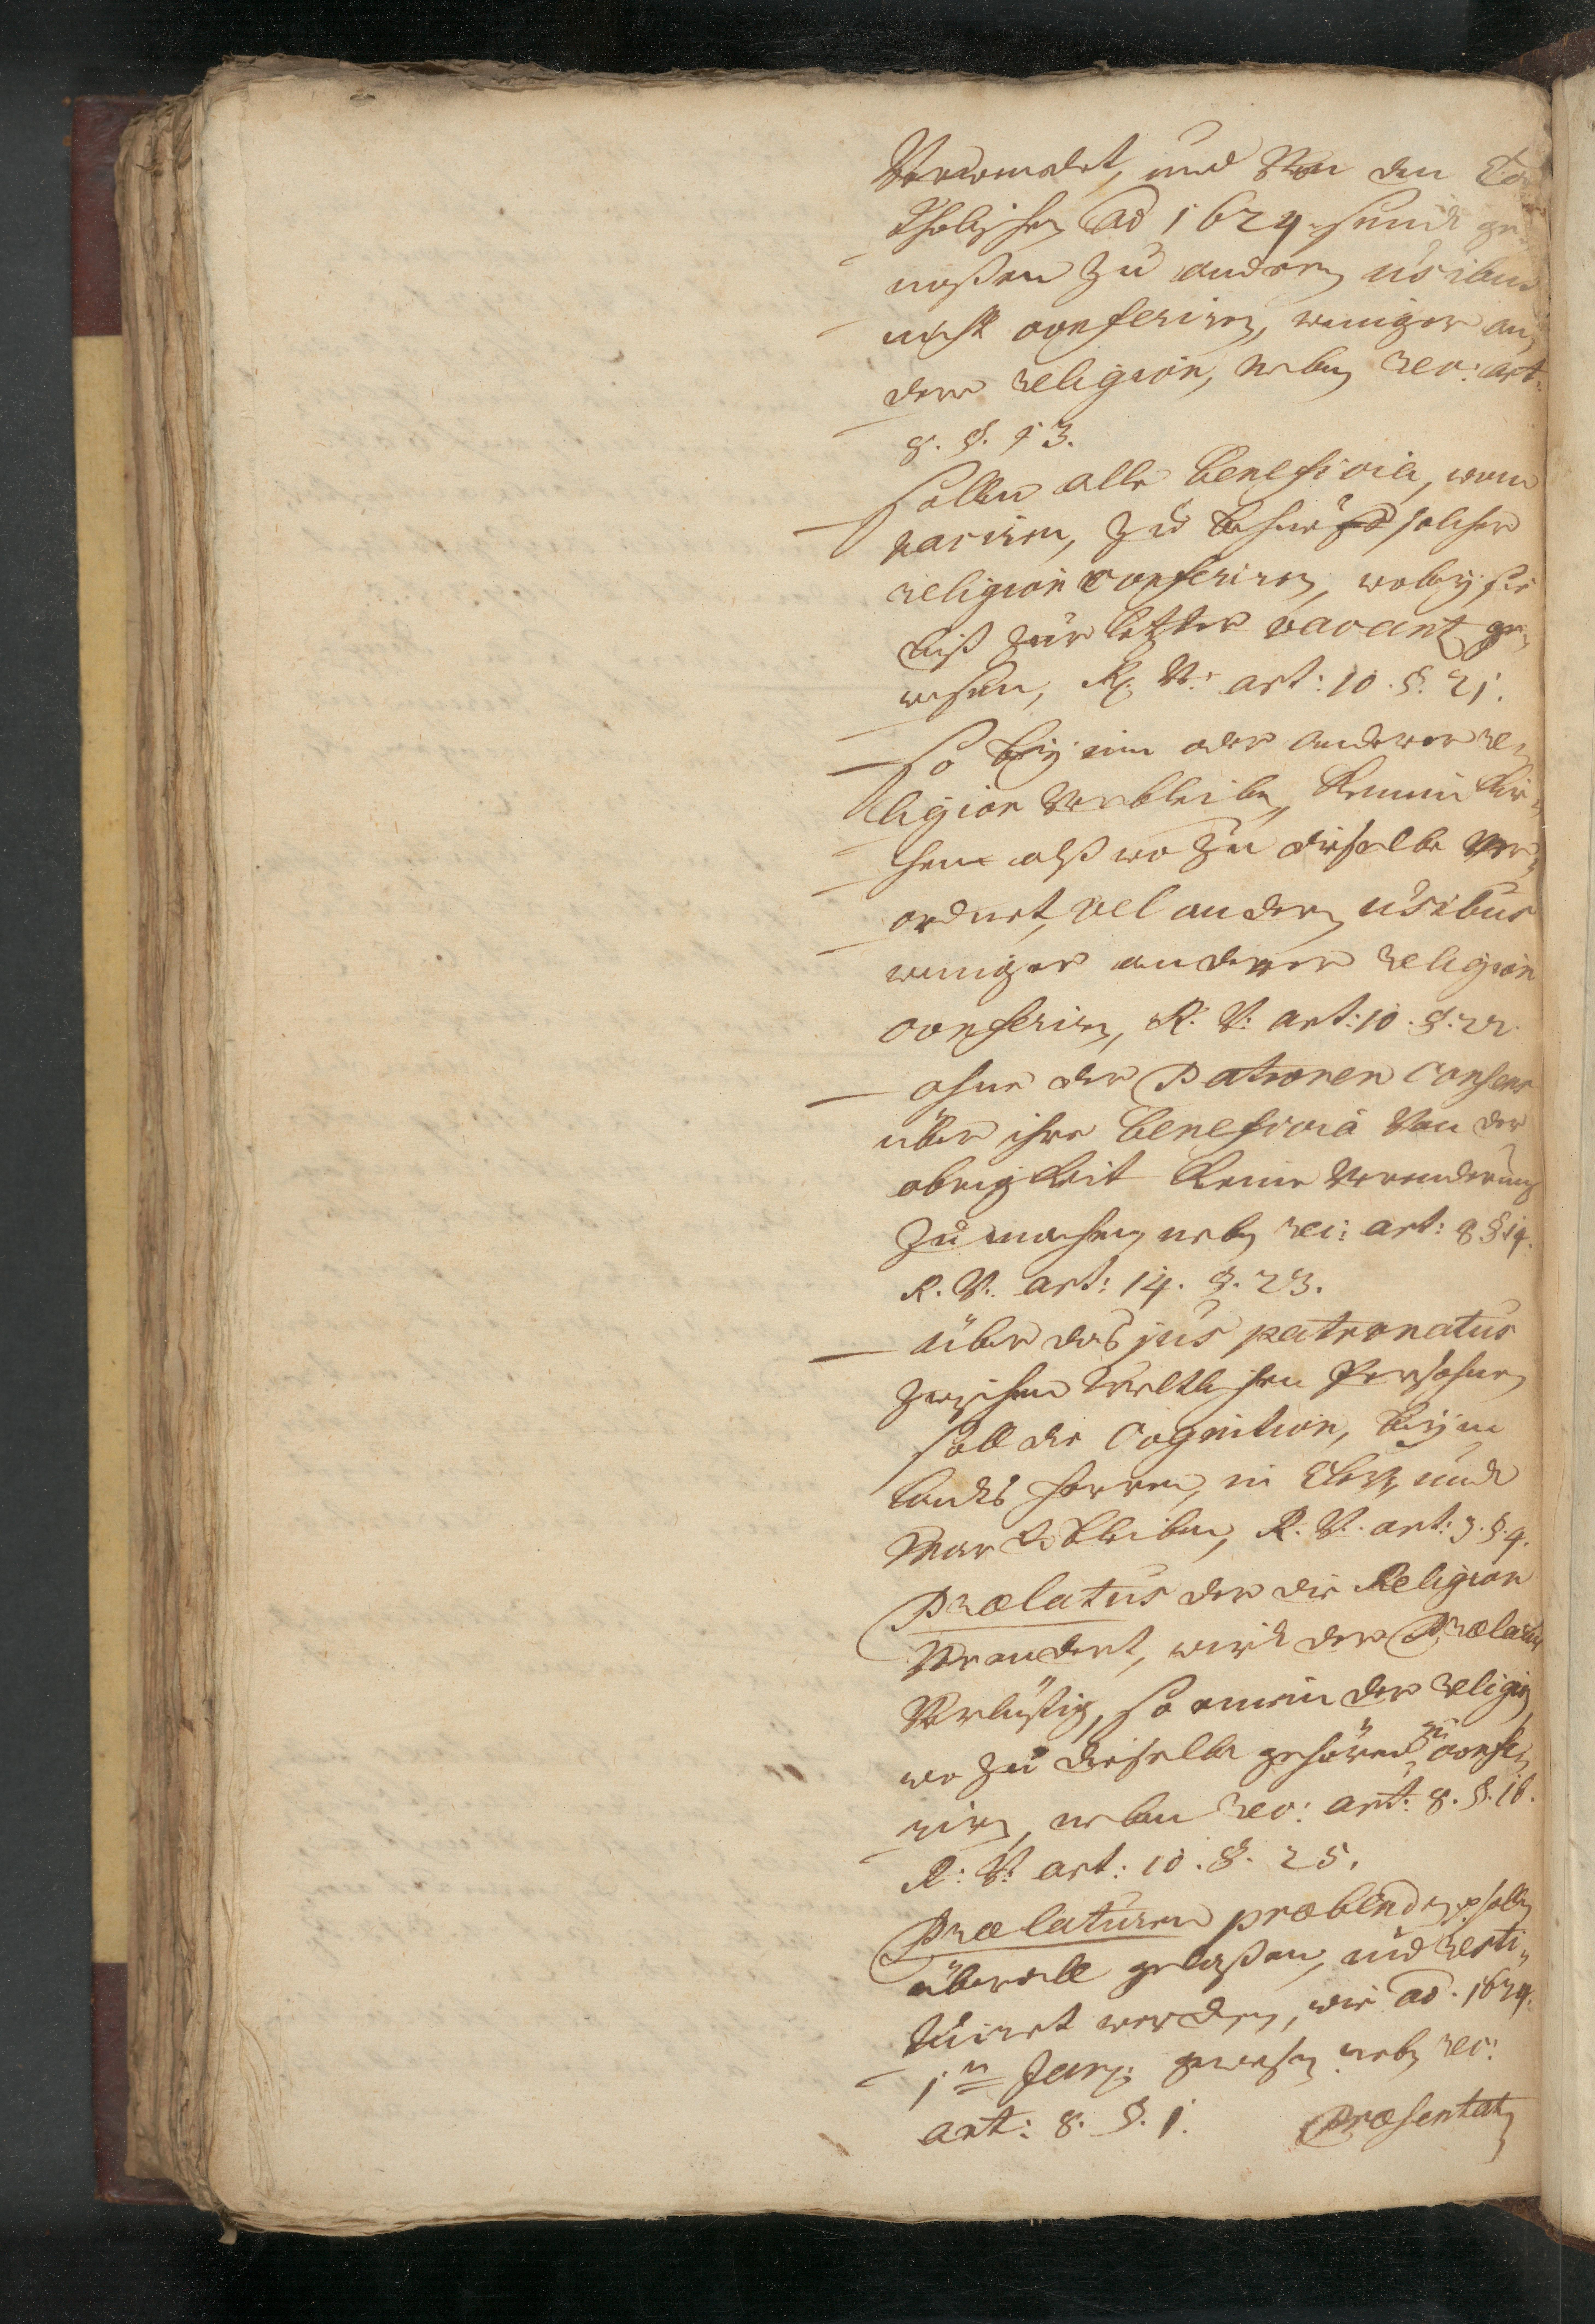 Verwendet, und Von den Ca
tholischen Ao 1624 seind ge„
noßen zu anderen usibus
nicht conferiren, weniger an„
derer religion, neben rec: art:
8. §. 13.
— sollen alle beneficia, wenn
vaciren, zu behueff solcher
religion conferiren, wobey sie
biß zur letzter vacantz ge„
wesen, R. V: art: 10. §. 21.
— So bey ein oder anderer re„
ligion Verbleiben, keinen Kir„
chen alß wozu dieselbe Ver„
ordnet, vel anderen usibus
weniger anderer religion
conferiren, R. V: art: 10. §. 22.
— ohne der Patronen Consens
über ihre beneficia Von der
obrigkeit keine Veranderung
zu machen neben rec: art: 8 §. 14.
R. V. art: 14. §. 23.
— über das jus patronatus
zwischen Weltlichen Persohnen
soll die Cognition, beym
landts herren, in Cleve, undt
Marck bleiben, R. V. art: 3. §. 4.
Prælatus der die Religion
Verandert, wird der Prælatur
Verlustig, so einem der religion
wozu dieselbe gehörend zu confe„
riren, neben rec: art: 8. §. 16.
R: V: art: 10. §. 25.
Prælaturen præbenden sollen
überall gelaßen, und resti„
tuiret werden, wie ao. 1624.
1ten Jan: gewesen neben rec:
art: 8. §. 1.
Præsentat